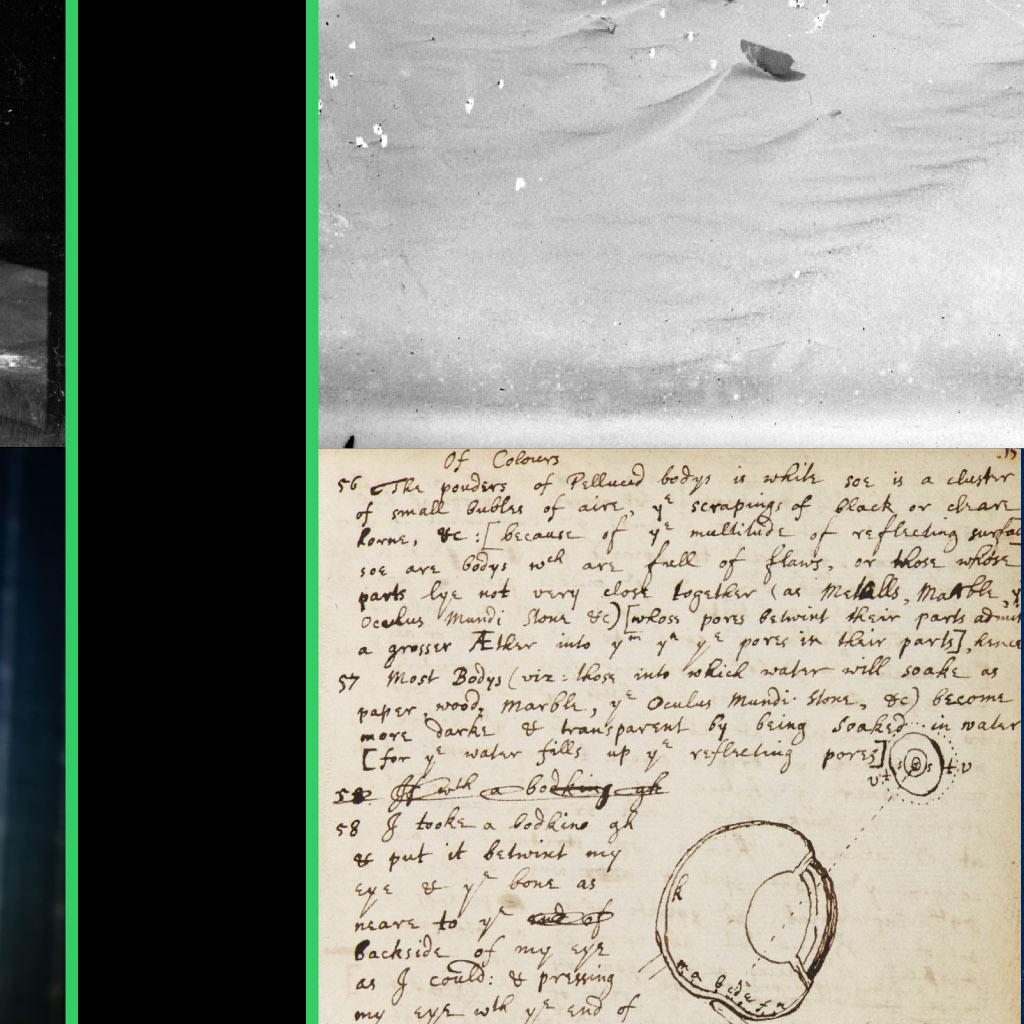 Of Colours
56 The pouders of Pellucid bodys is white soe is a cluster
of small bubles of aire, yᵉ scrapings of black or cleare
horne, &c :[because of yᵉ multitude of reflecting surfac
soe are bodys wᶜʰ are full of flaws, or those whose
parts lye not very close together (as Metalls, Marble, yᵉ
Oculus Mundi Stone &c)[whose pores betwixt their parts admit
a grosser Æther into yᵐ yⁿ yᵉ pores in their parts], hence
57 Most Bodys (viz: those into which water will soake as
paper, wood, marble, yᵉ Oculus Mundi Stone, &c) become
more darke & transparent by being soaked in water
[for yᵉ water fills up yᵉ reflecting pores]
58 If wᵗʰ a bodking gh
58 I tooke a bodkine gh
& put it betwixt my
eye & yᵉ bone as
neare to yᵉ end of
backside of my eye
as I could: & pressing
my eye wᵗʰ yᵉ end of